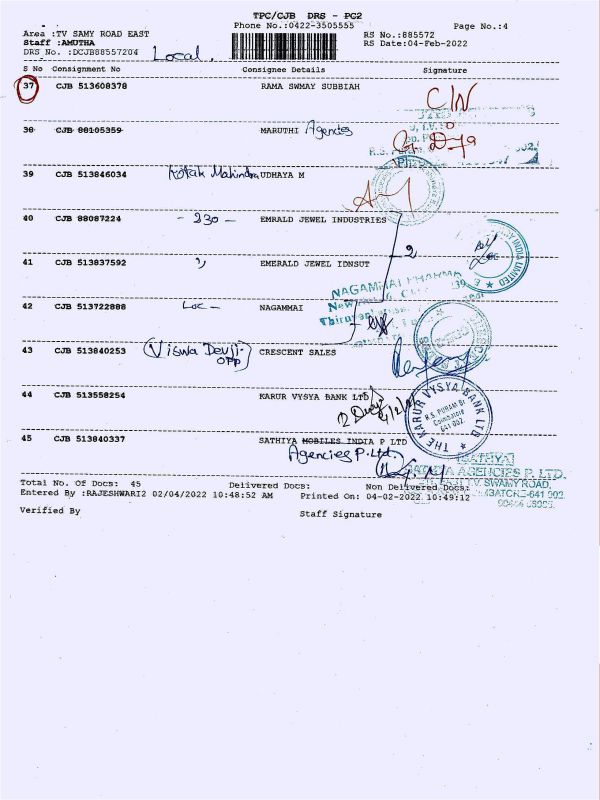 TPC/CJB DRS - PC2
Phone No.:0422-3505555 Page No.:4
Area :TV SAMY ROAD EAST RS No.:885572
Staff :AMUTHA RS Date:04-Feb-2022
DRS No. :DCJB88557204 Local.
S No Consignment No Consignee Details Signature
37 CJB 513608378 RAMA SWMAY SUBBIAH
38 CJB 88105359 MARUTHI Agencies
39 CJB 513846034 Kotak Mahindra UDHAYA M
40 CJB 88087224 - 230 - EMRALD JEWEL INDUSTRIES
2
41 CJB 513837592 " EMERALD JEWEL IDNSUT
INDIA LIMITED
NAGAMMAI PHARMA
42 CJB 513722888 Loc - NAGAMMAI
43 CJB 513840253 (Viswa Devji. OPP) CRESCENT SALES
44 CJB 513558254 KARUR VYSYA BANK LTD
THE KARUR VYSYA BANK LTD
R.S. PURAM Br
Coimbatore
641 002.
45 CJB 513840337 SATHIYA MOBILES INDIA P LTD
Agencies P.Ltd
SATHIYA AGENCIES P. LTD.
T.V. SWAMY ROAD,
Total No. Of Docs: 45 Delivered Docs: Non Delivered Docs:
Entered By :RAJESHWARI2 02/04/2022 10:48:52 AM Printed On: 04-02-2022 10:49:12
Verified By Staff Signature